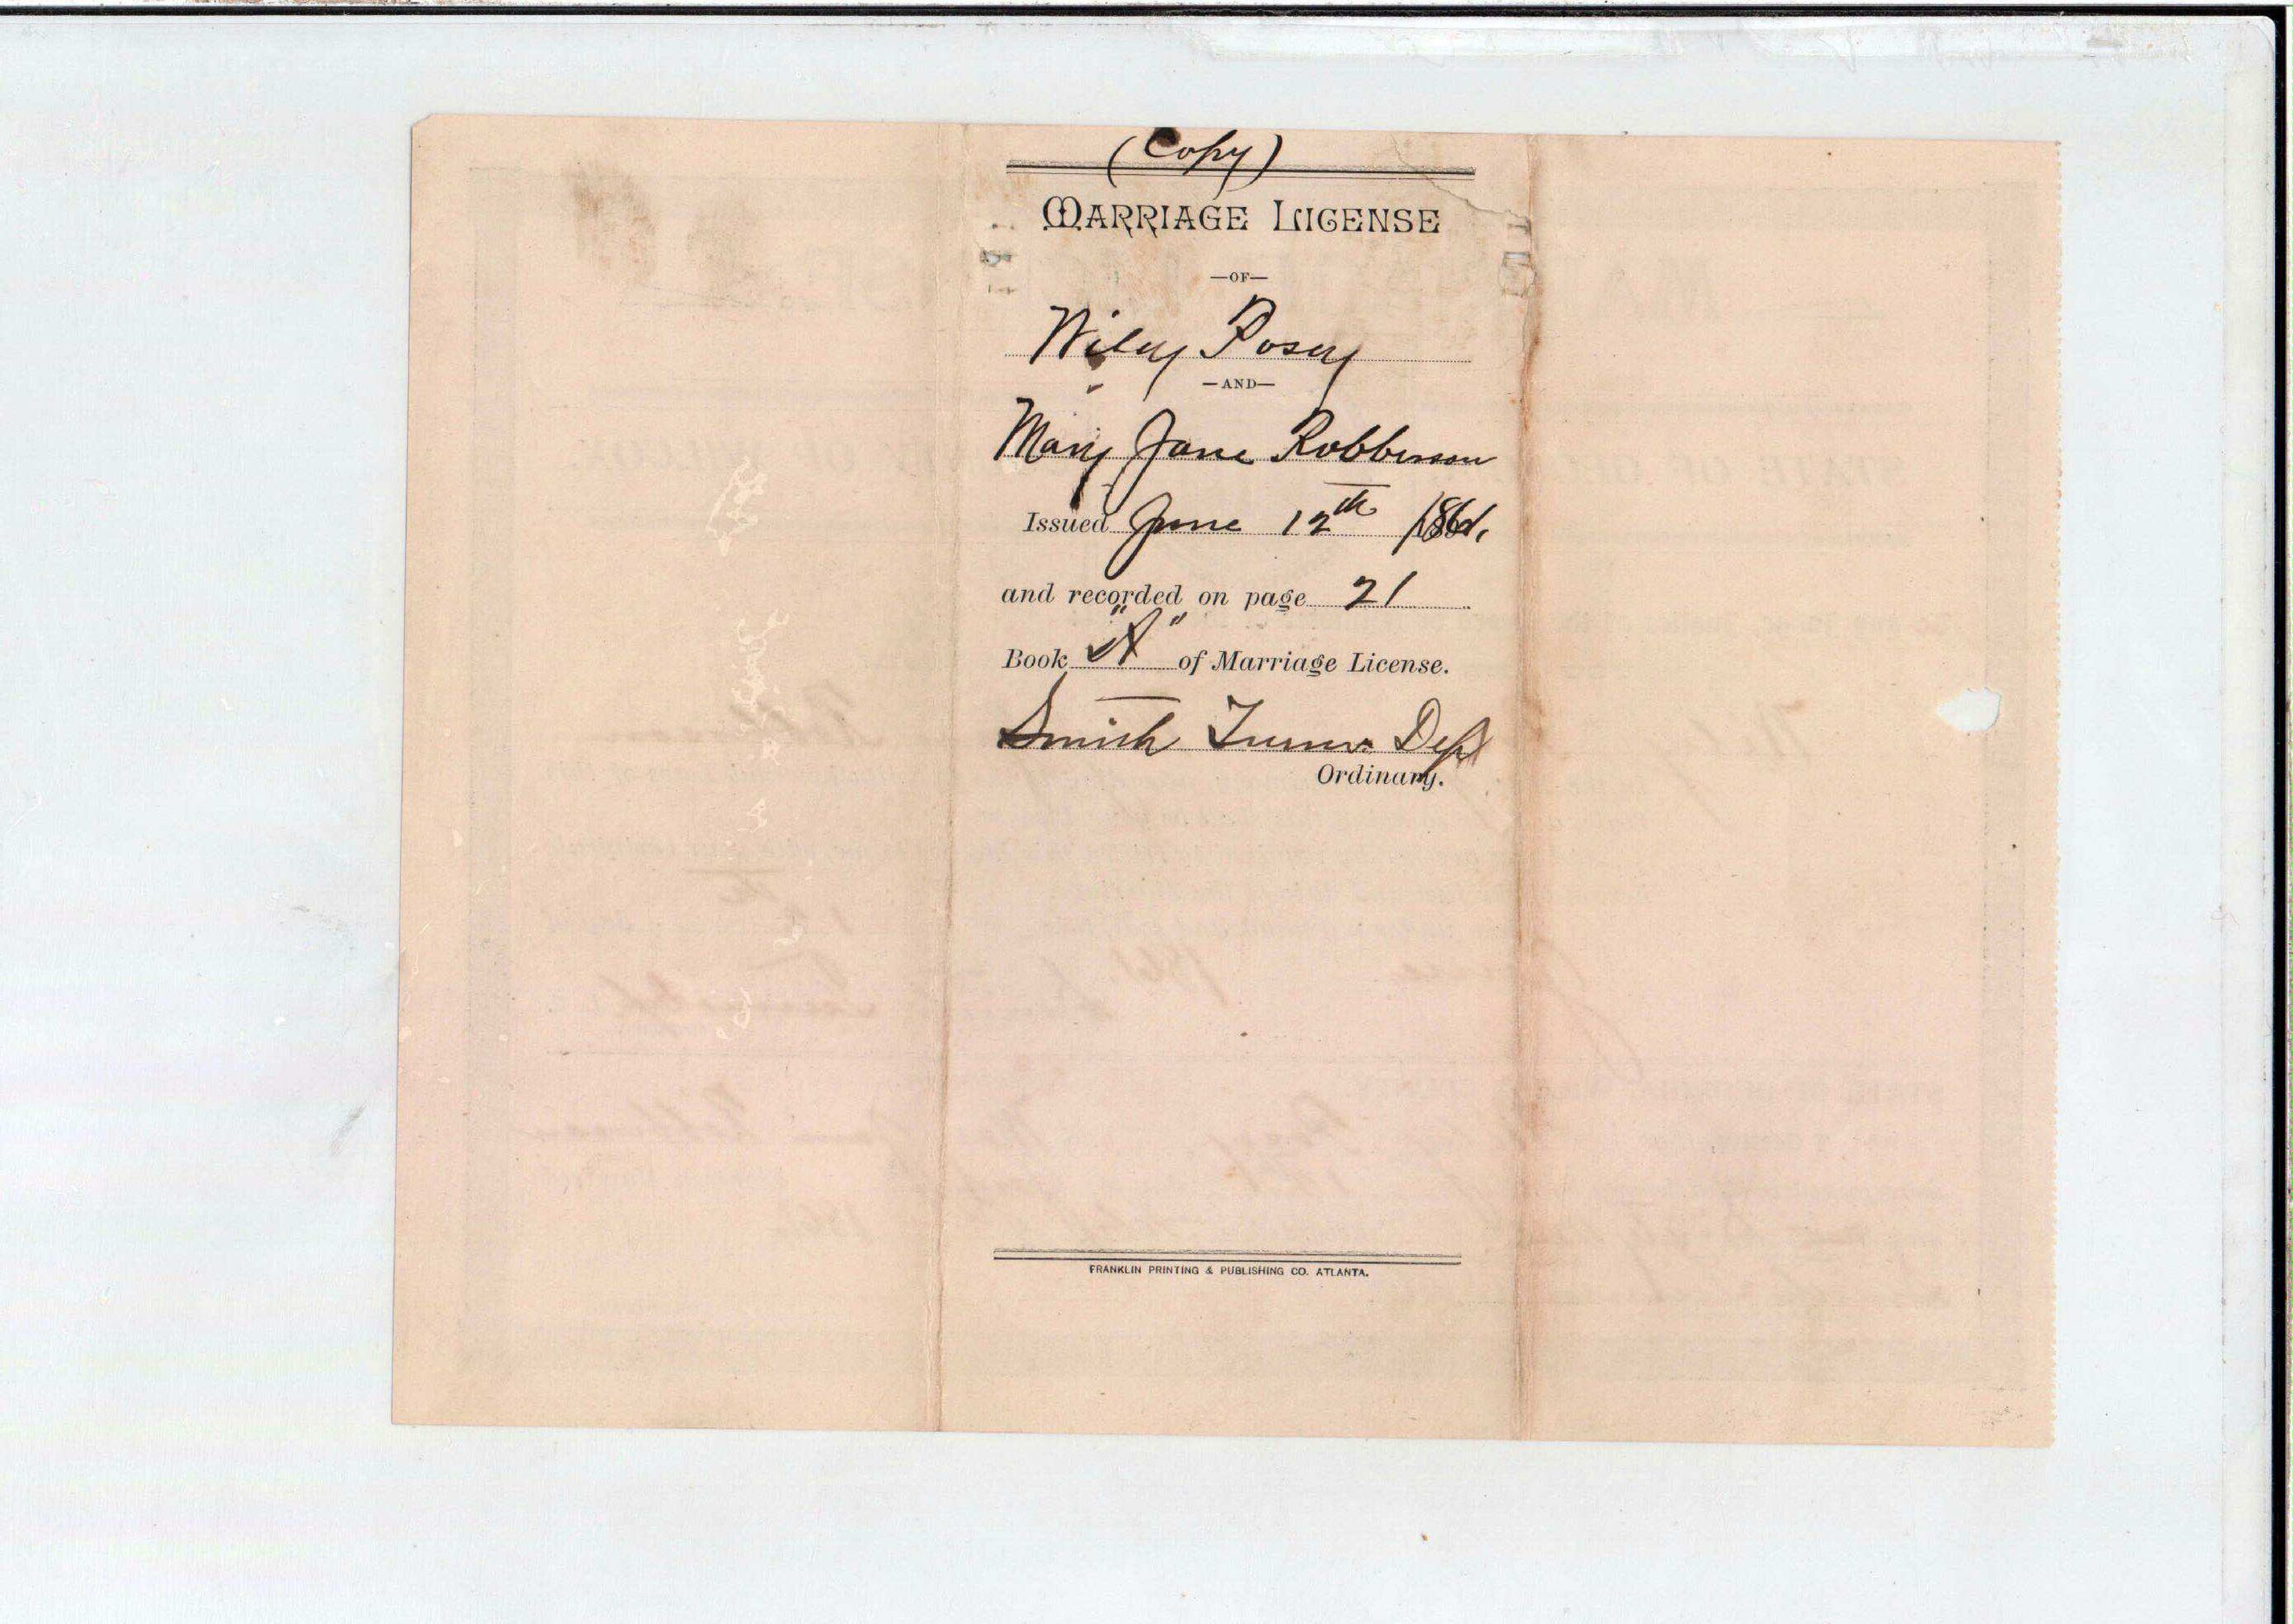 (Copy)
MARRIAGE LICENSE
—OF—
Wiley Posey
—AND—
Mary Jane Robberson
Issued June 12th 1861.
and recorded on page 21
Book "A" of Marriage License.
Smith Turner Dept
Ordinary.
FRANKLIN PRINTING & PUBLISHING CO. ATLANTA.